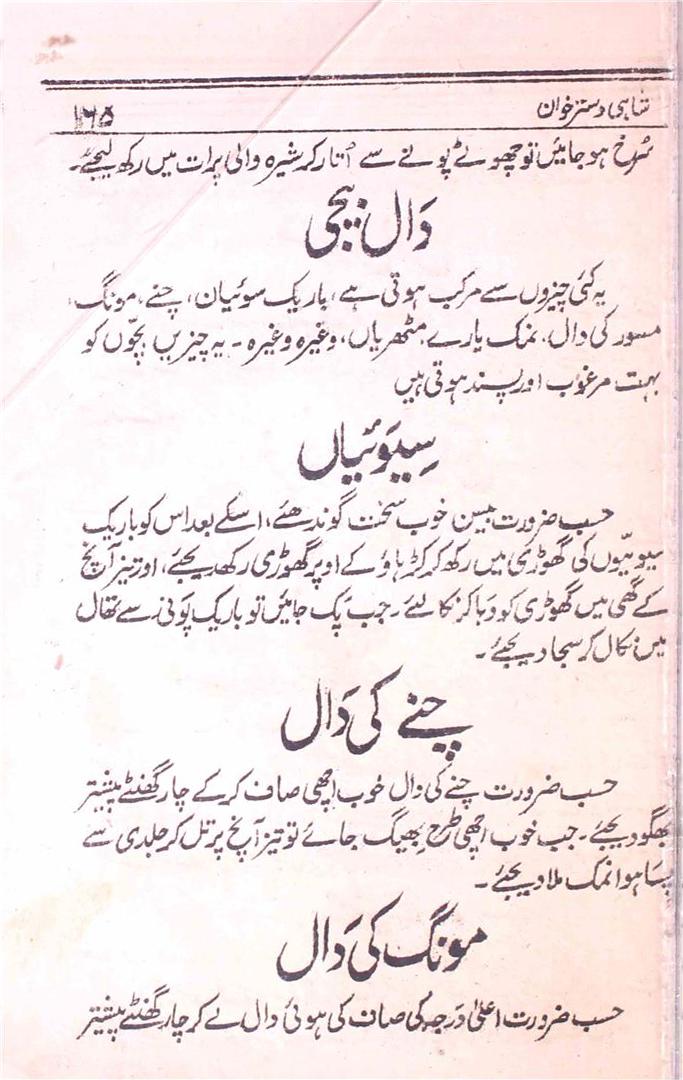 شاہی دسترخوان
۱۶۵
سُرخ ہو جائیں تو چھوٹے پونے سے اُتار کر شیرہ والی پرات میں رکھ لیجئے۔
دَال بیجی
یہ کئی چیزوں سے مرکب ہوتی ہے، باریک سوئیان، چنے، مونگ،
مسور کی دال، نمک پارے، مٹھریاں، وغیرہ وغیرہ۔ یہ چیزیں بچّوں کو
بہت مرغوب اور پسند ہوتی ہیں
سِیوَئیاں
حسب ضرورت بیسن خوب سخت گوندھئے، اسکے بعد اس کو باریک
سیوئیّوں کی گھوڑی میں رکھ کر کڑہاؤ کے اوپر گھوڑی رکھ دیجئے، اور تیز آنچ
کے گھی میں گھوڑی کو دبا کر نکالئے۔ جب پک جائیں تو باریک پَونی سے تھال
میں نکال کر سجا دیجئے۔
چنے کی دَال
حسب ضرورت چنے کی دال خوب اچھی صاف کر کے چار گھنٹے پیشتر
بھگو دیجئے۔ جب خوب اچھی طرح بھیگ جائے تو تیز آنچ پر تل کر جلدی سے
پسَا ہوا نمک ملا دیجئے۔
مونگ کی دَال
حسب ضرورت اعلیٰ دَرجہ کی صاف کی ہوئی دال لے کر چار گھنٹے پیشتر